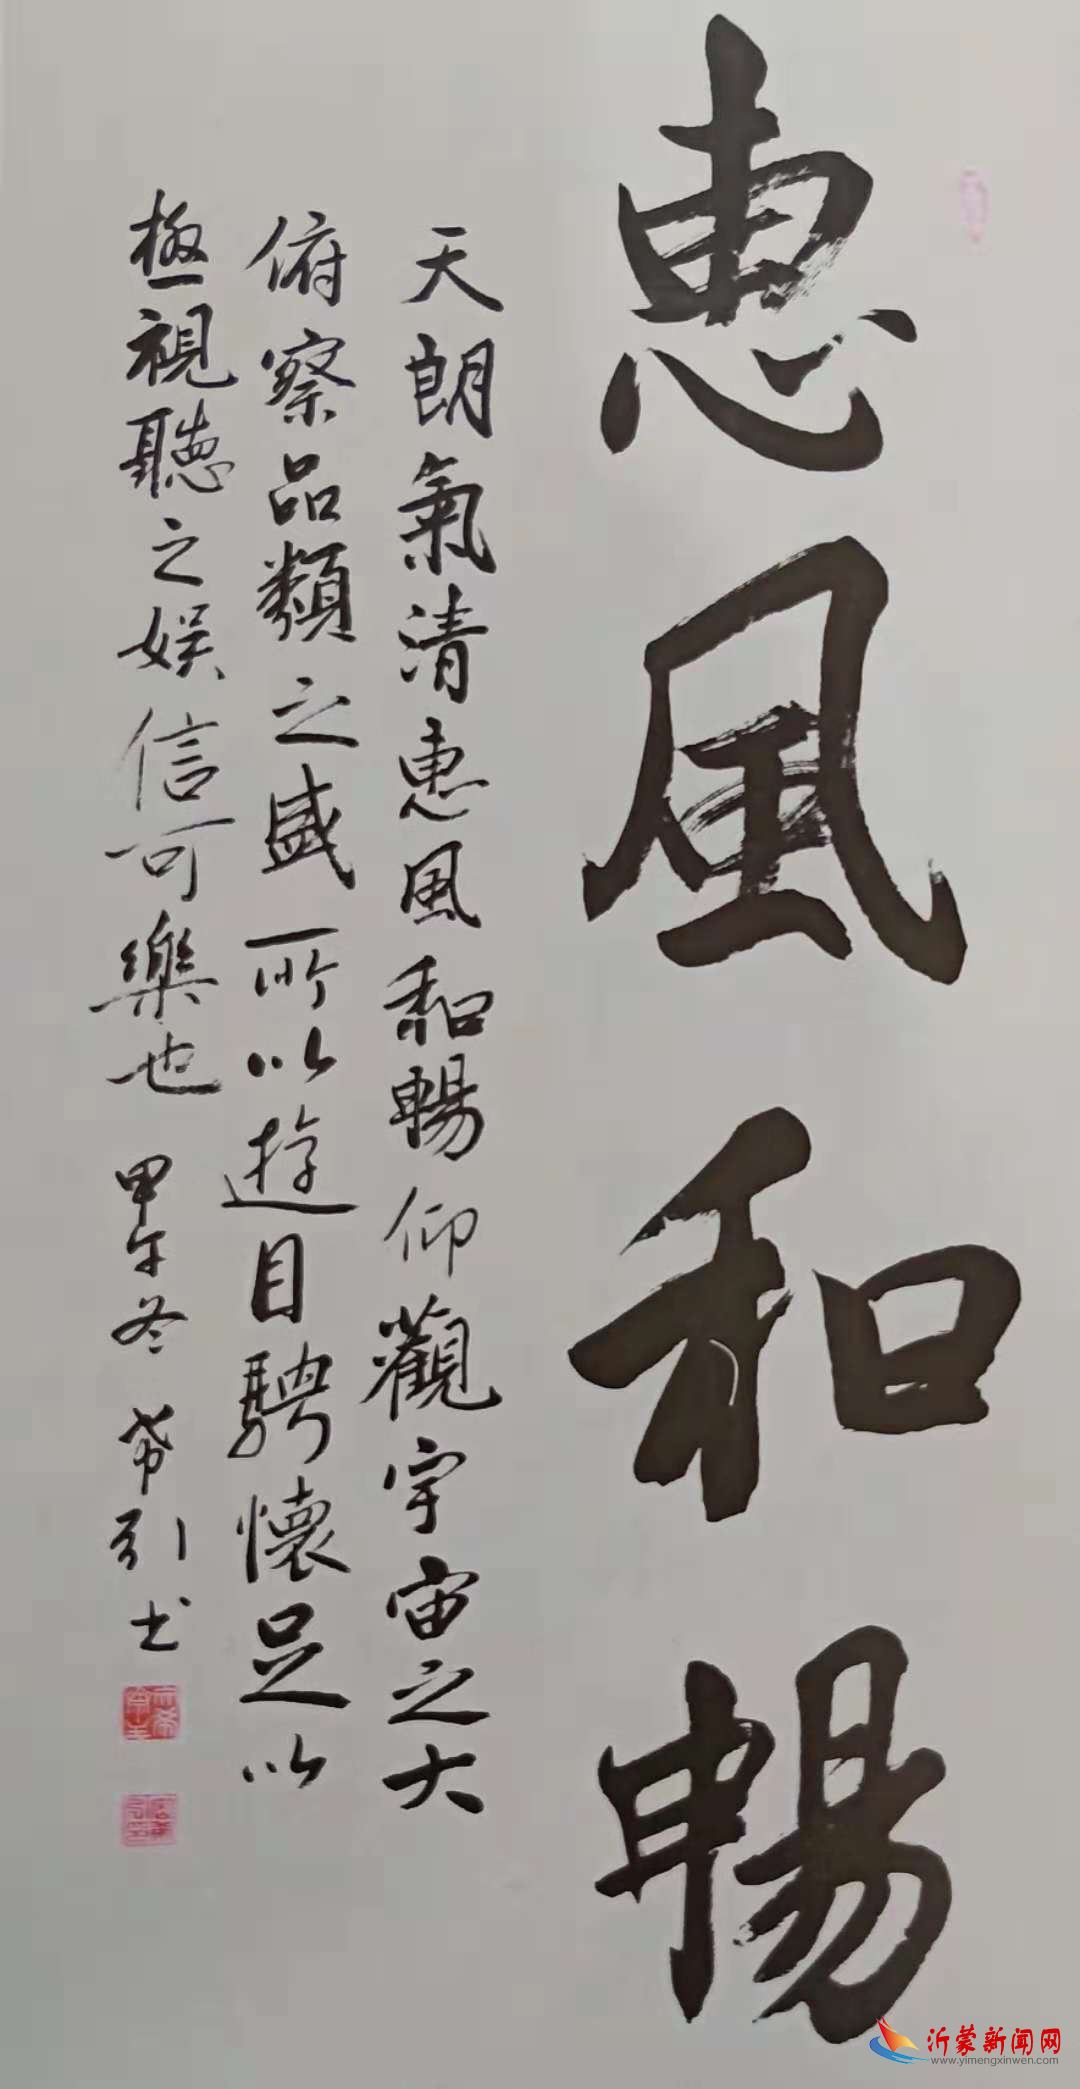 惠風和暢
天朗氣清惠風和暢仰觀宇宙之大
俯察品類之盛所以遊目騁懷足以
極視聽之娱信可樂也 甲午冬 希引书
沂蒙新闻网
www.yimengxinwen.com